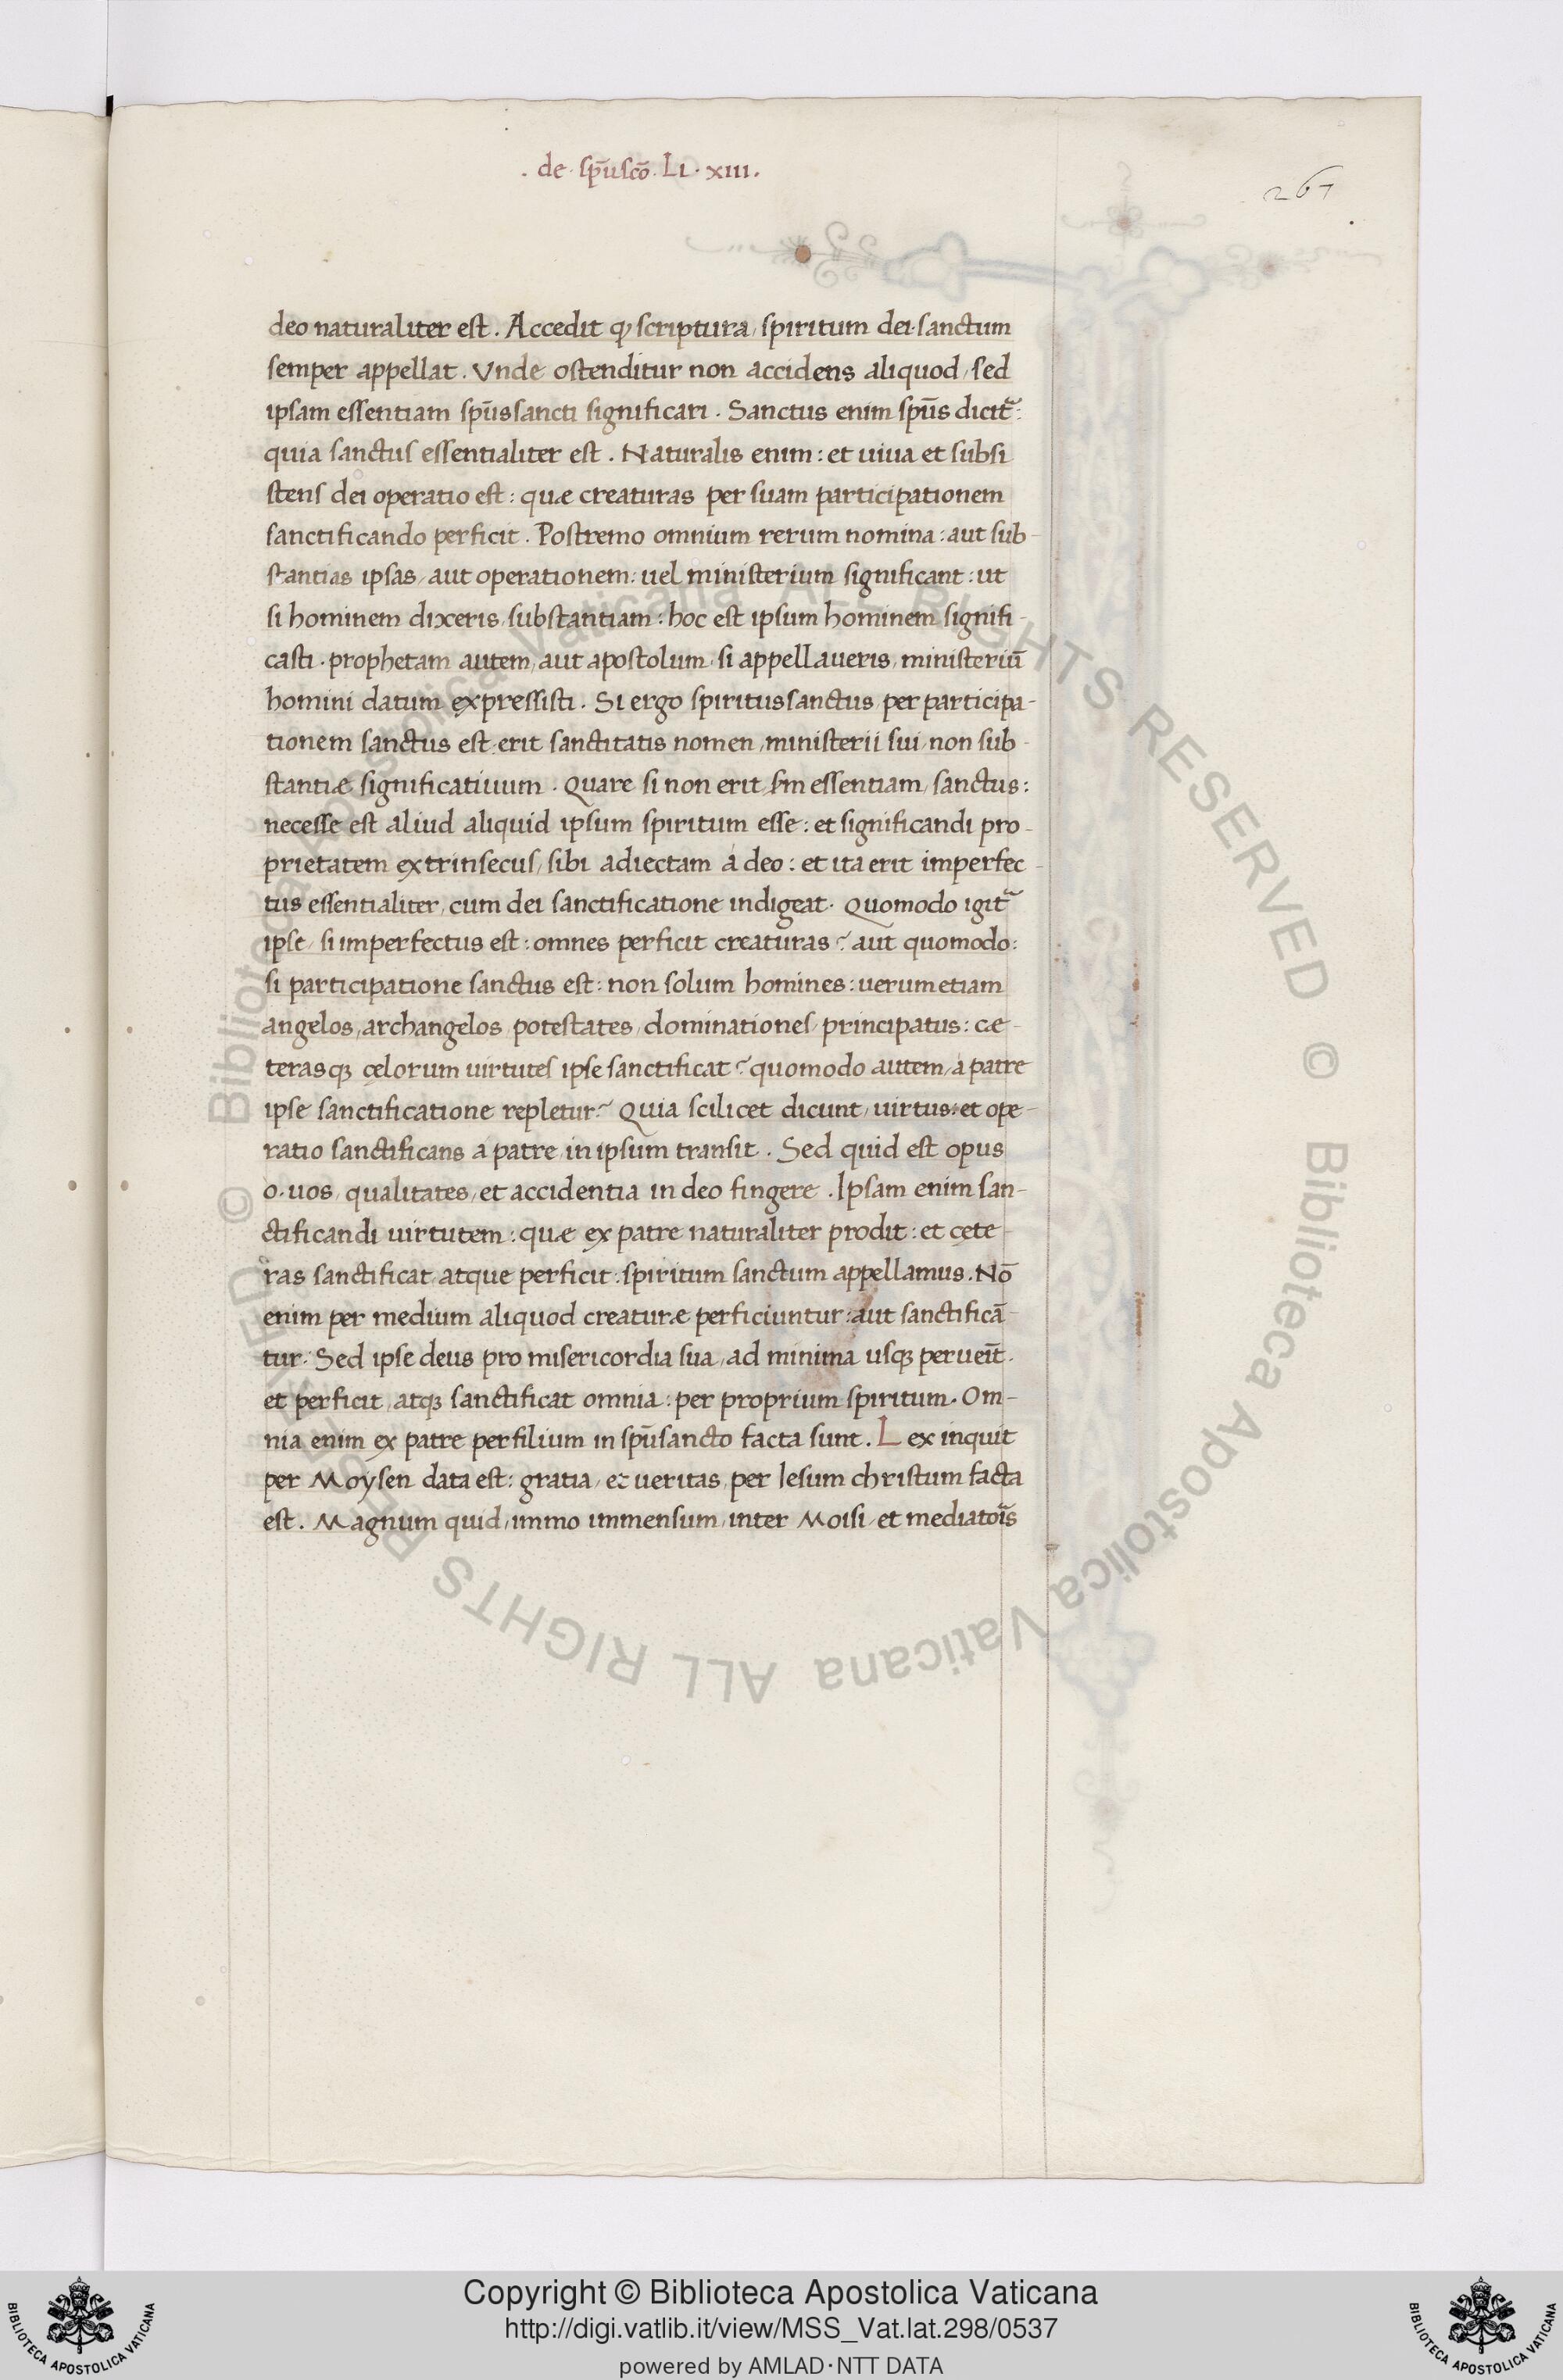 . de . sp̄uscō . Li . xiii .
267
deo naturaliter est . Accedit ꝙ scriptura / spiritum dei · sanctum
semper appellat . Vnde ostenditur non accidens aliquod / sed
ipsam essentiam sp̄ussancti significari . Sanctus enim sp̄us dicit᷑ :
quia sanctus essentialiter est . Naturalis enim : et uiua et subsi
stens dei operatio est : quæ creaturas per suam participationem
sanctificando perficit . Postremo omnium rerum nomina : aut sub-
stantias ipsas / aut operationem : uel ministerium significant : ut
si hominem dixeris / substantiam : hoc est ipsum hominem signifi-
casti . prophetam autem / aut apostolum / si appellaueris / ministeriū
homini datum expressisti . Si ergo spiritussanctus / per participa-
tionem sanctus est : erit sanctitatis nomen / ministerii sui / non sub-
stantiæ significatiuum . Quare si non erit / s̄m essentiam / sanctus :
necesse est aliud aliquid ipsum spiritum esse : et significandi pro-
prietatem extrinsecus / sibi adiectam a deo : et ita erit imperfec-
tus essentialiter / cum dei sanctificatione indigeat . Quomodo igit᷑
ipse / si imperfectus est : omnes perficit creaturas ? aut quomodo :
si participatione sanctus est : non solum homines : uerumetiam
angelos / archangelos / potestates / dominationes / principatus : cæ-
terasqꝫ cęlorum uirtutes ipse sanctificat ? quomodo autem / a patre
ipse sanctificatione repletur ? Quia scilicet dicunt / uirtus : et ope-
ratio sanctificans a patre / in ipsum transit . Sed quid est opus
o . uos / qualitates / et accidentia in deo fingere . Ipsam enim san-
ctificandi uirtutem : quæ ex patre naturaliter prodit : et cęte-
ras sanctificat atque perficit : spiritum sanctum appellamus . Nō
enim per medium aliquod creaturæ perficiuntur : aut sanctificā-
tur . Sed ipse deus pro misericordia sua / ad minima usqꝫ perueīt .
et perficit / atqꝫ sanctificat omnia : per proprium spiritum . Om-
nia enim ex patre per filium in sp̄usancto facta sunt . Lex inquit
per Moysen data est : gratia / et ueritas / per Iesum christum facta
est . Magnum quid / immo immensum / inter Moisi / et mediato᷑is
© Biblioteca Apostolica Vaticana ALL RIGHTS RESERVED
© Biblioteca Apostolica Vaticana ALL RIGHTS RESERVED
Copyright © Biblioteca Apostolica Vaticana
http://digi.vatlib.it/view/MSS_Vat.lat.298/0537
powered by AMLAD·NTT DATA
BIBLIOTECA APOSTOLICA VATICANA
BIBLIOTECA APOSTOLICA VATICANA